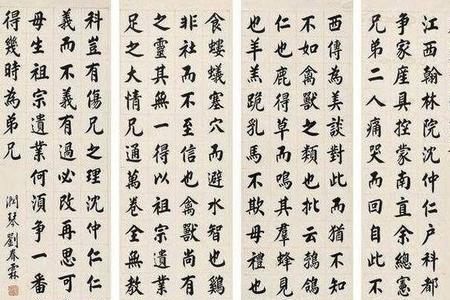 江西翰林院沈仲仁户科都
争家產具控蒙南直余總憲
兄弟二人痛哭而回自此不
西傳為美談對此而猶不知
不如禽獸之類也批云鵓鴣
仁也鹿得草而鳴其群蜂見
也羊羔跪乳馬不欺母禮也
食螻蟻塞穴而避水智也鷄
非社而不至信也禽獸尚有
之靈其無一得以祖宗遺業
足之大情兄通萬卷全無教
科豈有傷兄之理沈仲仁仁
義而不義有過必改再思可
母生祖宗遺業何須争一番
得幾時為弟兄
潤琴劉春霖